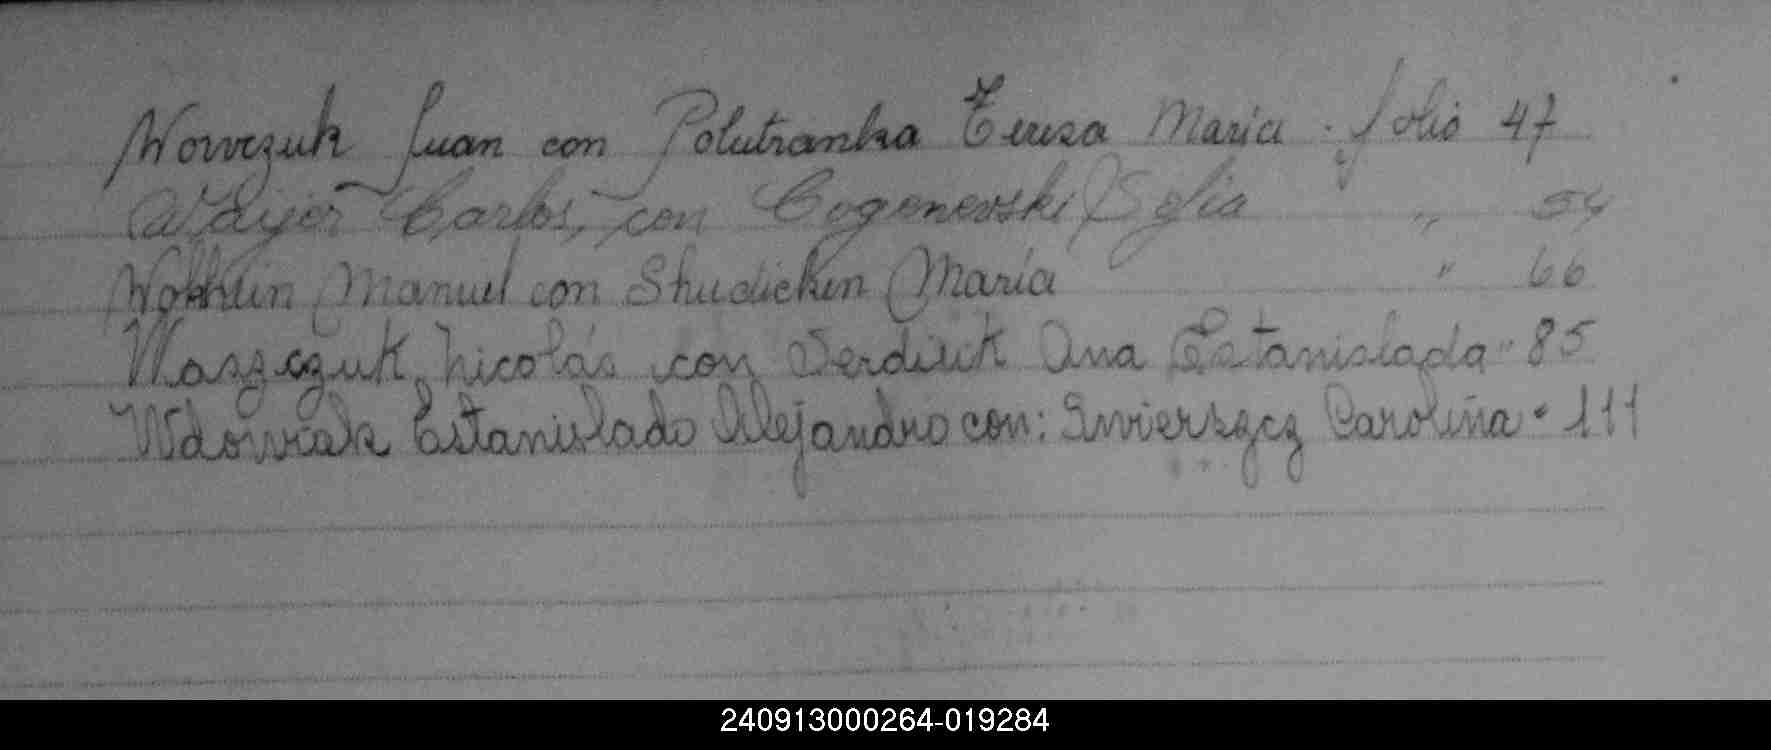 Wowczuk Juan con Polutranka Teresa María . folio 47
Wayer Carlos, con Cogonevski Sofia " 54
Manuel con Shudicken María " 66
Waszczuk Nicolás con Serdiuk Ana Estanislada " 85
Wdowiak Estanislado Alejandro con: Zwierszcz Carolina " 111
240913000264-019284